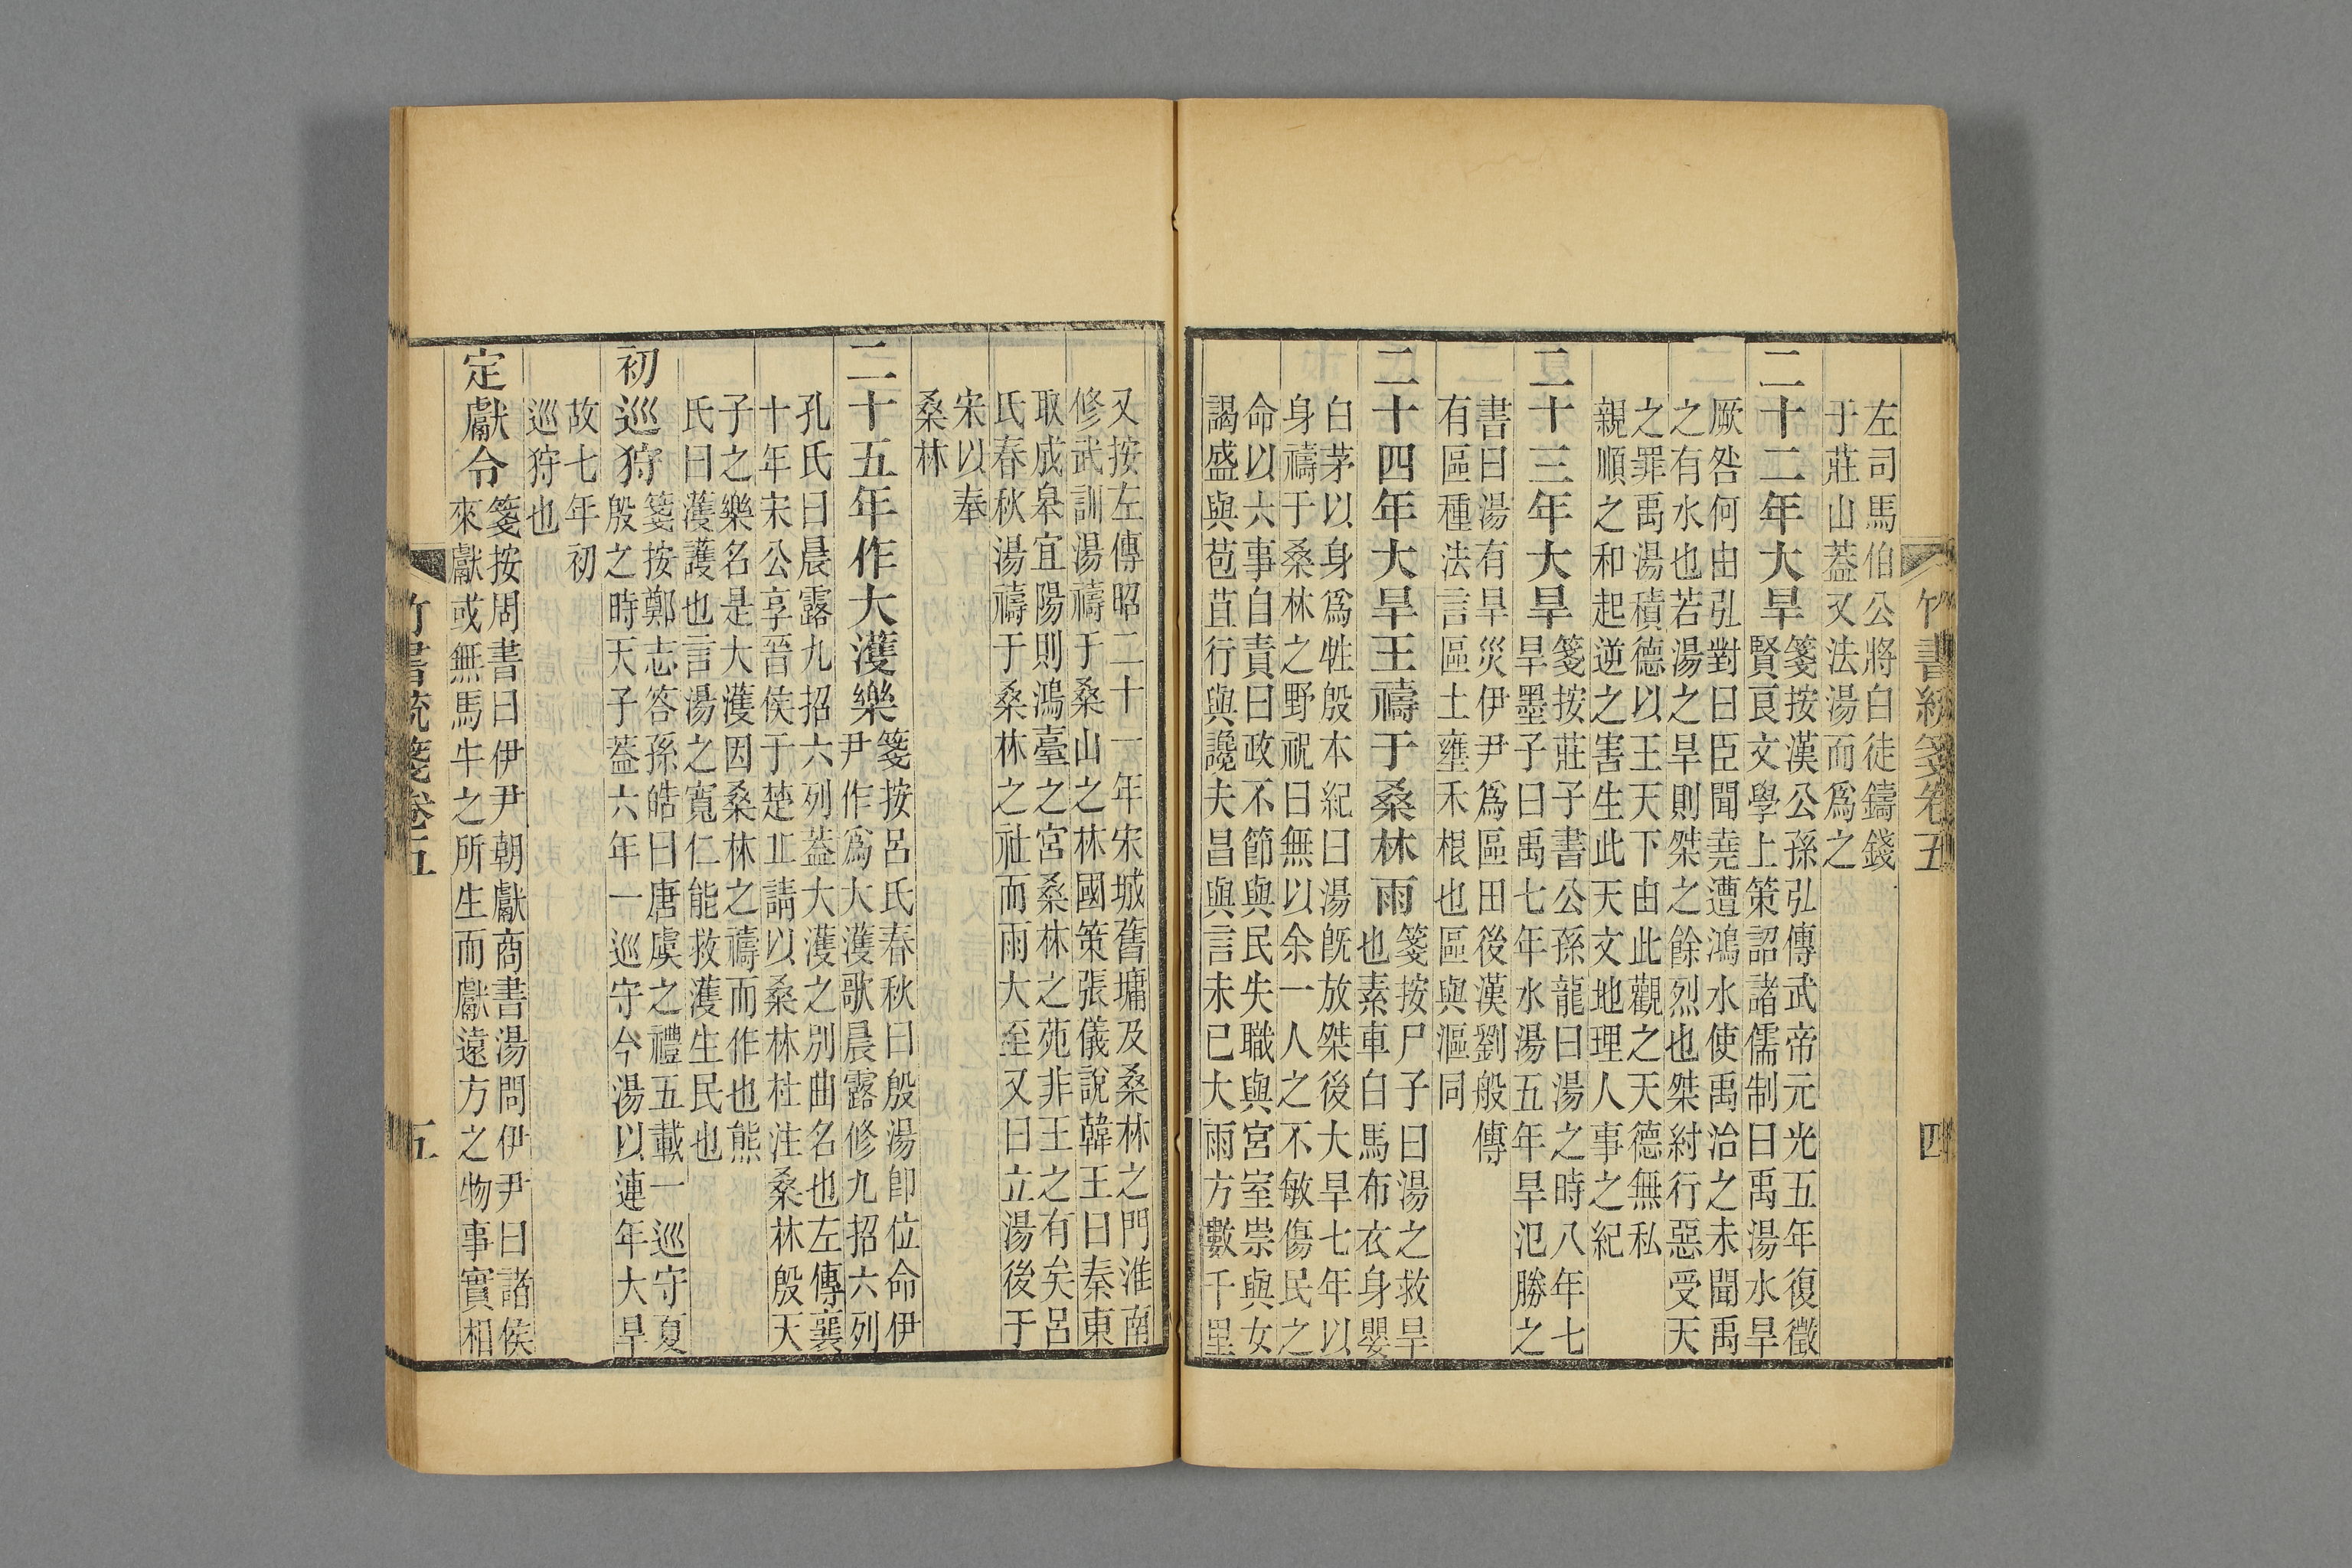 竹書統箋卷五
四
左司馬伯公將白徒鑄錢
于莊山葢又法湯而為之
二十二年大旱
箋按漢公孫弘傳武帝元光五年復徵
賢良文學上策詔諸儒制曰禹湯水旱
厥咎何由弘對曰臣聞堯遭鴻水使禹治之未聞禹
之有水也若湯之旱則桀之餘烈也桀紂行惡受天
之罪禹湯積德以王天下由此觀之天德無私
親順之和起逆之害生此天文地理人事之紀
二十三年大旱
箋按莊子書公孫龍曰湯之時八年七
旱墨子曰禹七年水湯五年旱氾勝之
書曰湯有旱災伊尹為區田後漢劉般傳
有區種法言區土壅禾根也區與漚同
二十四年大旱王禱于桑林雨
箋按尸子曰湯之救旱
也素車白馬布衣身嬰
白茅以身為牲殷本紀曰湯旣放桀後大旱七年以
身禱于桑林之野祝曰無以余一人之不敏傷民之
命以六事自責曰政不節與民失職與宮室崇與女
謁盛與苞苴行與讒夫昌與言未已大雨方數千里
又按左傳昭二十一年宋城舊墉及桑林之門淮南
修武訓湯禱于桑山之林國策張儀說韓王曰秦東
取成皋宜陽則鴻臺之宮桑林之苑非王之有矣呂
氏春秋湯禱于桑林之社而雨大至又曰立湯後于
宋以奉
桑林
二十五年作大濩樂
箋按呂氏春秋曰殷湯卽位命伊
尹作為大濩歌晨露修九招六列
孔氏曰晨露九招六列葢大濩之別曲名也左傳襄
十年宋公享晉侯于楚丘請以桑林杜注桑林殷天
子之樂名是大濩因桑林之禱而作也熊
氏曰濩護也言湯之寬仁能救濩生民也
初巡狩
箋按鄭志答孫皓曰唐虞之禮五載一巡守夏
殷之時天子葢六年一巡守今湯以連年大旱
故七年初
巡狩也
定獻令
箋按周書曰伊尹朝獻商書湯問伊尹曰諸侯
來獻或無馬牛之所生而獻遠方之物事實相
竹書統箋卷五
五